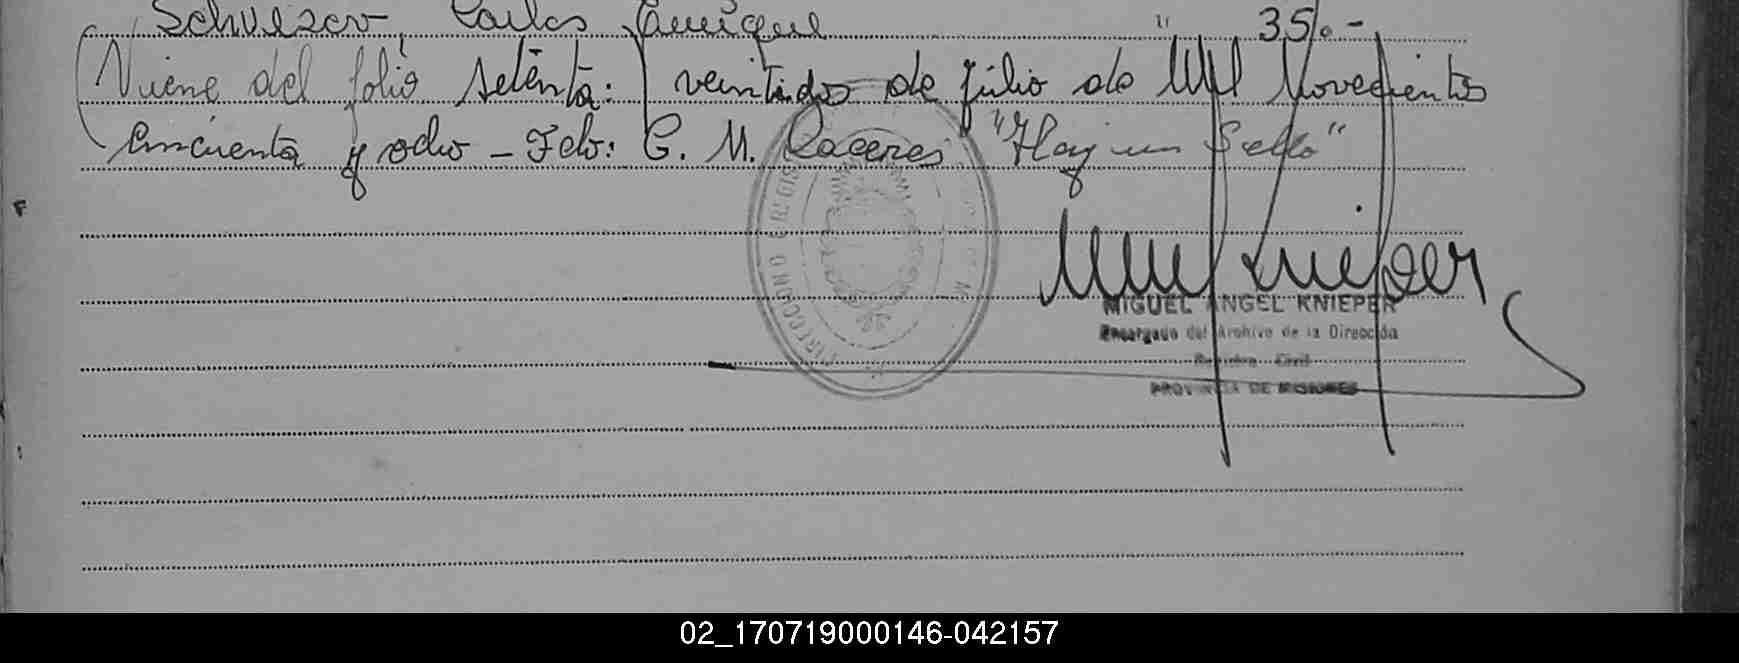 Carlos Enrique " 35/. -
Viene del folio setenta: veintidos de julio de Mil Novecientos
Cincuenta y ocho - Fdo: C. M. Caceres "Hay un Sello"
F
DIRECCION
MIGUEL ANGEL KNIEPER
Encargado del Archivo de la Dirección
Registro Civil
PROVINCIA DE MISIONES
02_170719000146-042157